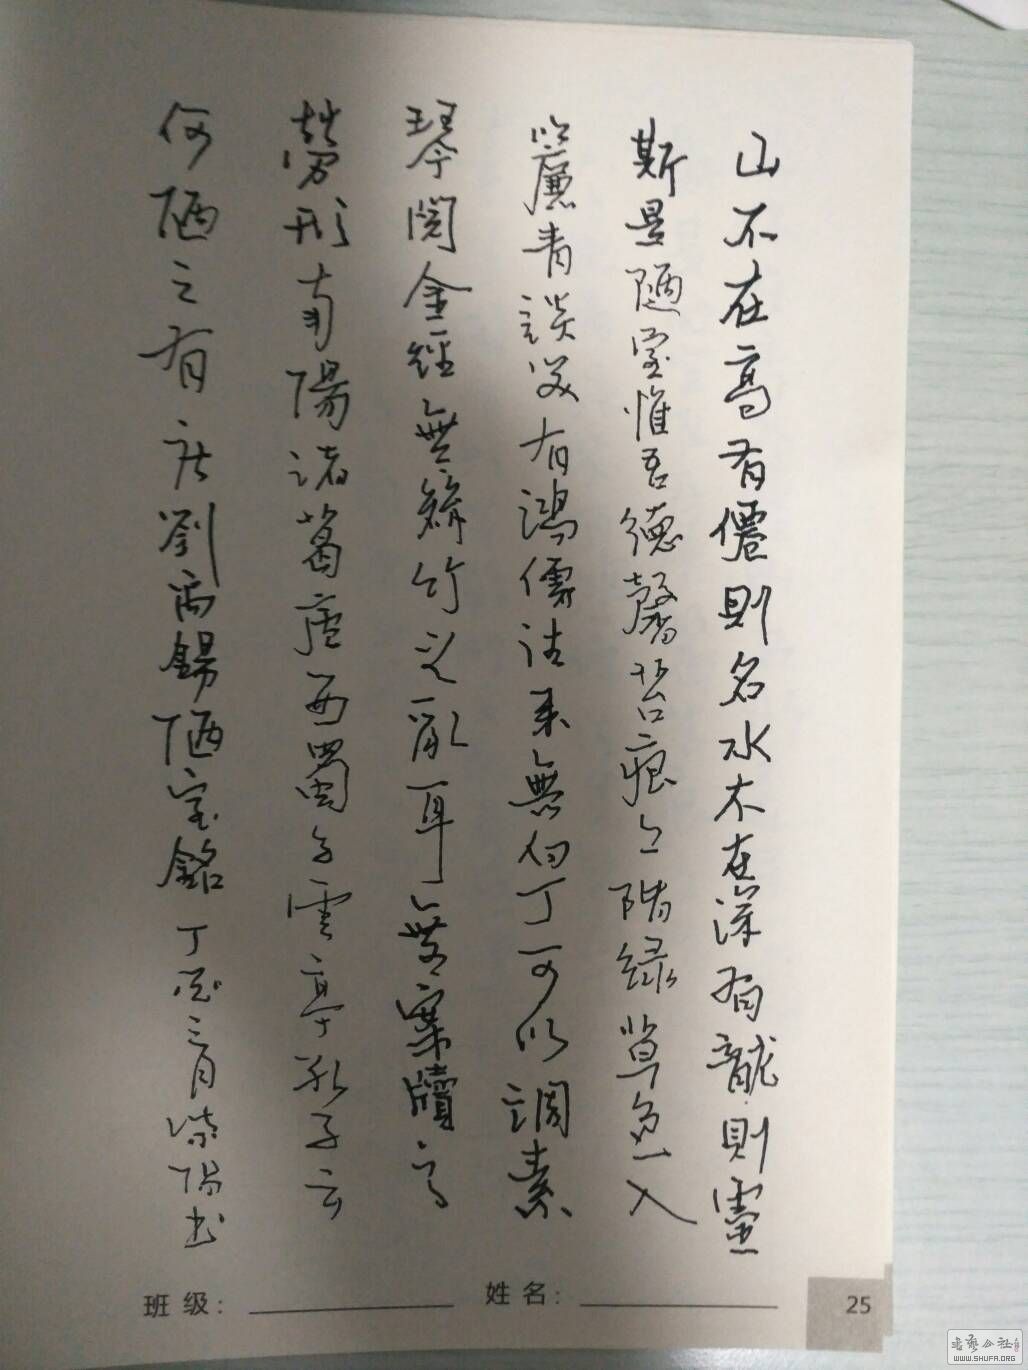 山不在高有僊則名水不在深有龍則靈
斯是陋室惟吾德馨苔痕上階綠草色入
簾青談笑有鴻儒往來無白丁可以調素
琴閱金經無絲竹之亂耳無案牘之
勞形南陽諸葛廬西蜀子雲亭孔子云
何陋之有 唐劉禹錫陋室銘 丁酉三月 陽書
班级:
姓名:
25
书艺公社
WWW.SHUFA.ORG